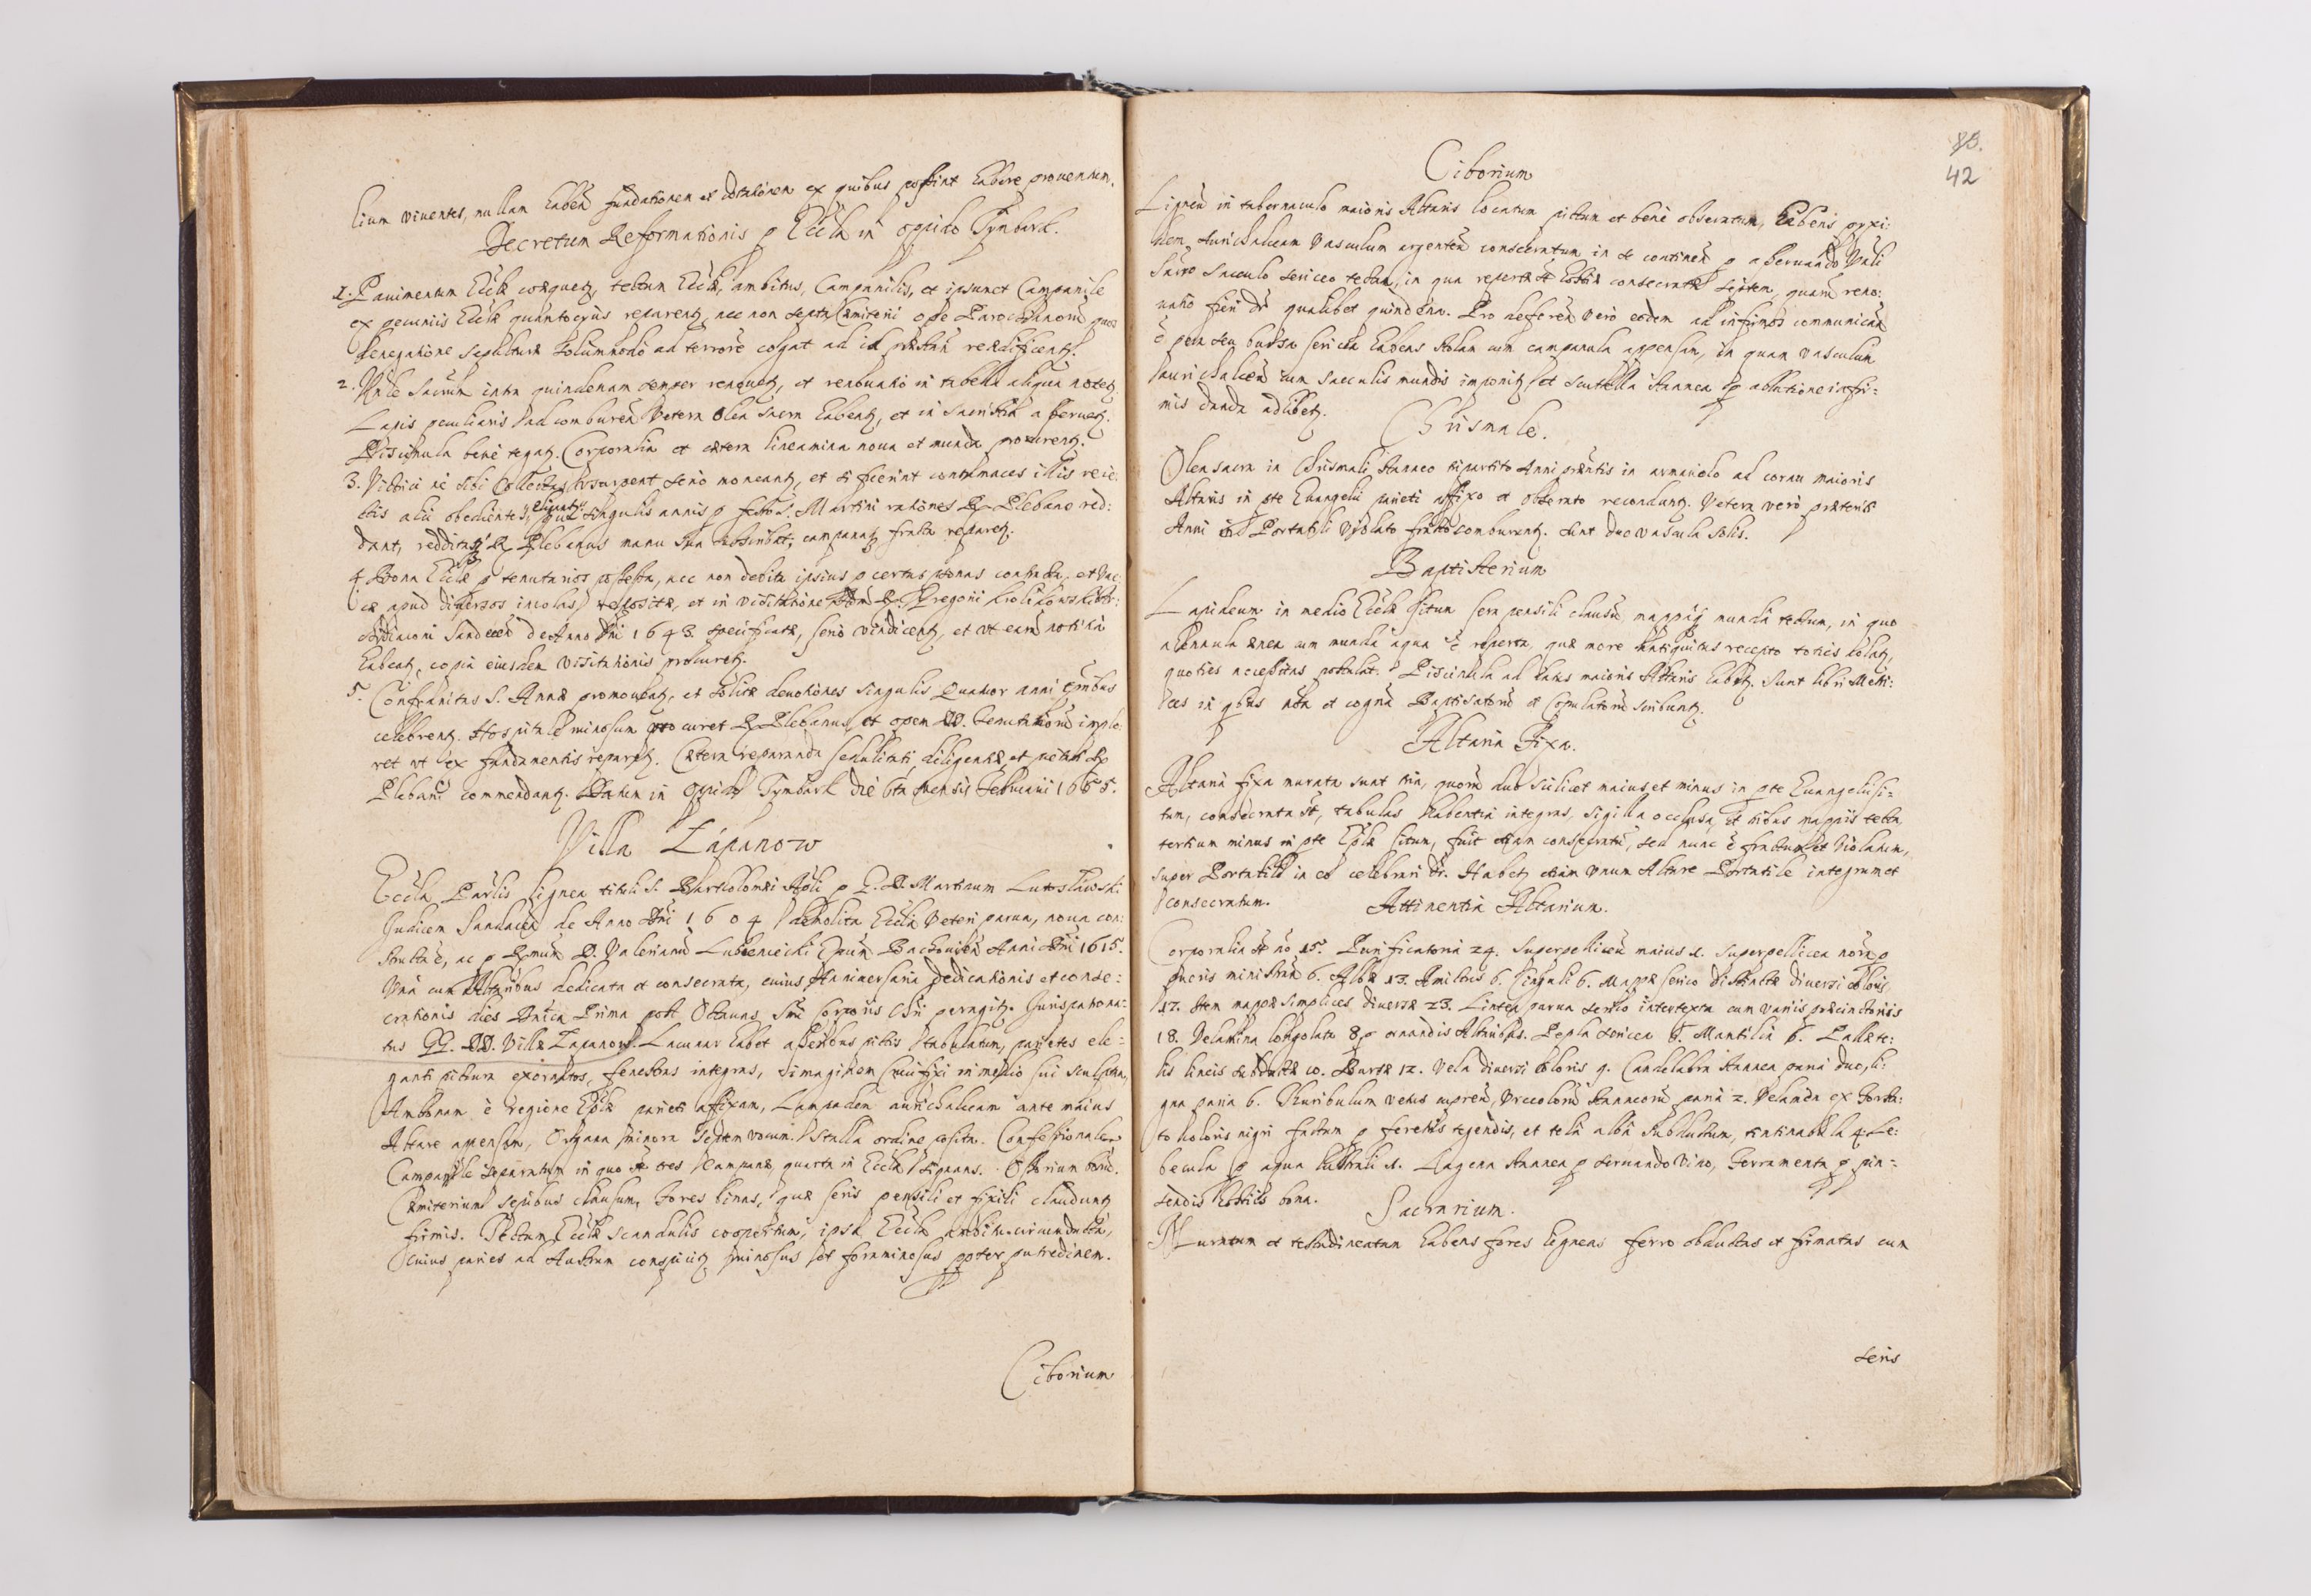 lium viventes, nullam haben̄ fundationem et dotationem ex quibus possint habere proventum.
Decretum Reformationis p Eccla in opido Tymbark.
1. Pavimentum Ecclæ coæquetʒ, tectum Ecclæ, ambitus, Campanilis, et ipsumet Campanile
ex pecuniis Ecclæ quantocyus reparentʒ, nec non septa Cæmiterii ope Parochianorū quos
denegatione sepulturæ solummodo ad terrorē cogat ad id præstan̄ reædificentʒ.
2. Vnde Sacrum intra quindenam semper renovetʒ, et renovatio in tabella aliqua notetʒ
Lapis peculiaris ad comburen̄ Vetera Olea sacra habeatʒ, et in Sacristia asservetʒ.
Piscinula bene tegatʒ. Corporalia et cætera lineamina nova et munda procurentʒ.
3. Vitrici ne sibi Collectas usurpent serio moneantʒ, et si fuerint contumaces illis reie:
ctis alii obedientes eligantʒ, qui singulis annis p festo S. Martini rationes R. Plebano red:
dant, redditasqʒ R. Plebanus manu sua subscribat, campanaqʒ fracta reparetʒ.
4. Bona Ecclæ p tenutarios possessa, nec non debita ipsius p certas psonas contracta, et Vac:
cæ apud diversos incolas repositæ, et in visitatione
Sandecen̄ de Anno Dni 1643. specificatæ, serio vindicentʒ, et vt earū notitia
habeatʒ, copia eiusdem Visitationis procuretʒ.
5. Confrafnitas S. Annæ promoveatʒ, et solitæ devotiones singulis Quatuor anni
celebrentʒ. Hospitale ruinosum pro curet R. Plebanus, et opem DD. Tenutariorū implo:
ret vt ex fundamentis reparetʒ. Cætera reparanda sedulitati, diligentiæ, et pietati R.
Plebani commendantʒ. Datum in Opido Tymbark die 6ta mensis Februarii 1665.
Villa Łapanow
Eccla Parlis lignea tituli S. Bartholomæi Apli p G. D. Martinum Lutosławski
Iudicem Sandecen̄ de Anno Dni 1604 demolita Eccla Veteri parua, noua con:
structa ē, ac p Rmum D. Valerianū Lubieniecki Epum Bachouien̄ Anni Dni 1615.
Vna cum Altaribus dedicata et consecrata, cuius Anniuersaria Dedicationis et conse:
crationis dies Dnica Prima post Octauas Smi Corporis Chri peragitʒ. Iurispatrona:
tus GG. DD. Villæ Łapanow. Lacunar habet asseribus pictis tabulatum, parietes ele:
ganti pictura exornatos, fenestras integras, imaginem Crucifixi in medio sui sculptam,
Ambonam è regione Eplæ parieti affixam, Lampadem aurichalceam ante maius
Altare appensam, Organa minora septem vocum. Stalla ordine posita. Confessionales
Campanile separatum in quo st̄ tres Campanæ, quarta in Eccla signans. Ossorium
Cæmiterium sepibus clausum, Fores binas, quæ seris pensili et fixili clauduntʒ
firmis. Tectum Ecclæ scandulis coopertum, ipsa Eccla ambitu circumducta,
Cuius paries ad Austrum conspicitʒ ruinosus et foraminosus ppter putredinem.
Ciborium
83.
42
Ciborium
Ligneū in tabernaculo maioris Altaris locatum pictum et benè obseratum, habens pyxi:
dem aurichalceam Vasculum argenteū consecratum in se continen̄ p asseruando Vnli
Sacro Sacculo sericeo tectum, in qua repertæ st̄ hostiæ consecratæ septem, quarū reno:
uatio fieri dr̄ qualibet quindena. Pro deferen̄ verò eodem ad infirmos communican̄
ē pera seu bursa sericea habens stolam cum campanula appensam, in quam vasculum
aurichalceū cum sacculis mundis imponitʒ et scutella stannea p ablutione infir=
mis danda adhibetʒ.
Chrismale.
Olea sacra in Chrismali stanneo tripartito Anni præntis in armariolo ad cornu maioris
Altaris in pte Euangelii parieti affixo et obserato reconduntʒ. Vetera verò præteriti
Anni in Portatili Violato fracto comburuntʒ. sunt duo vascula Solis.
Baptisterium
Lapideum in medio Ecclæ situm sera pensili clausū mappaqʒ munda tectum, in quo
ahennula ænea cum munda aqua ē reperta, quæ more antiquitus recepto toties
quoties necessitas postulat. Piscinula ad latus maioris Altaris habetʒ. Sunt libri Metri:
ces in qbus nōa et cognōa Baptisatorū et Copulatorū scribuntʒ.
Altaria Fixa.
Altaria fixa murata sunt tria, quorū duo scilicet maius et minus in pte Euangelii si=
tum, consecrata st̄, tabulas habentia integras, sigilla occlusa, et tribus mappis tecta
tertium minus in pte Eplæ situm, fuit etiam consecratū, sed nunc ē fractum et Violatum,
super Portatili in eo celebrari dr̄. Habetʒ etiam vnum Altare Portatile integrum et
consecratum.
Attinentia Altarium.
Corporalia st̄ no 15. Purificatoria 24. Superpelliceū maius 1. Superpellicea nōra p
pueris ministran̄ 6. Albæ 13. Amictus 6. Cinguli 6. Mappæ serico distinctæ diuersi coloris
17. Item mappæ simplices diuersæ 23. Lintea parua serico intertexta cum variis præcinctoriis
18. Velamina longolata 8 p ornandis Altaribus. Pepla sericea 5. Mantilia 6. Pallæ te:
lis lineis subductæ 10. Bursæ 12. Vela diuersi coloris 9. Candelabra stannea paria duo, li:
gna paria 6. Thuribulum vetus cupreū, Vrceolorū stanneorū paria 2. Velamen ex
to coloris nigri factum p feretris tegendis, et tela alba subductum, tintinabula 4. Le:
becula p aqua lustrali 1. Lagena stannea p seruando Vino, Ferramenta p pin=
sendis hostiis bona.
Sacrarium.
Muratum et testudineatum habens fores ligneas ferro obductas et firmatas cum
seris